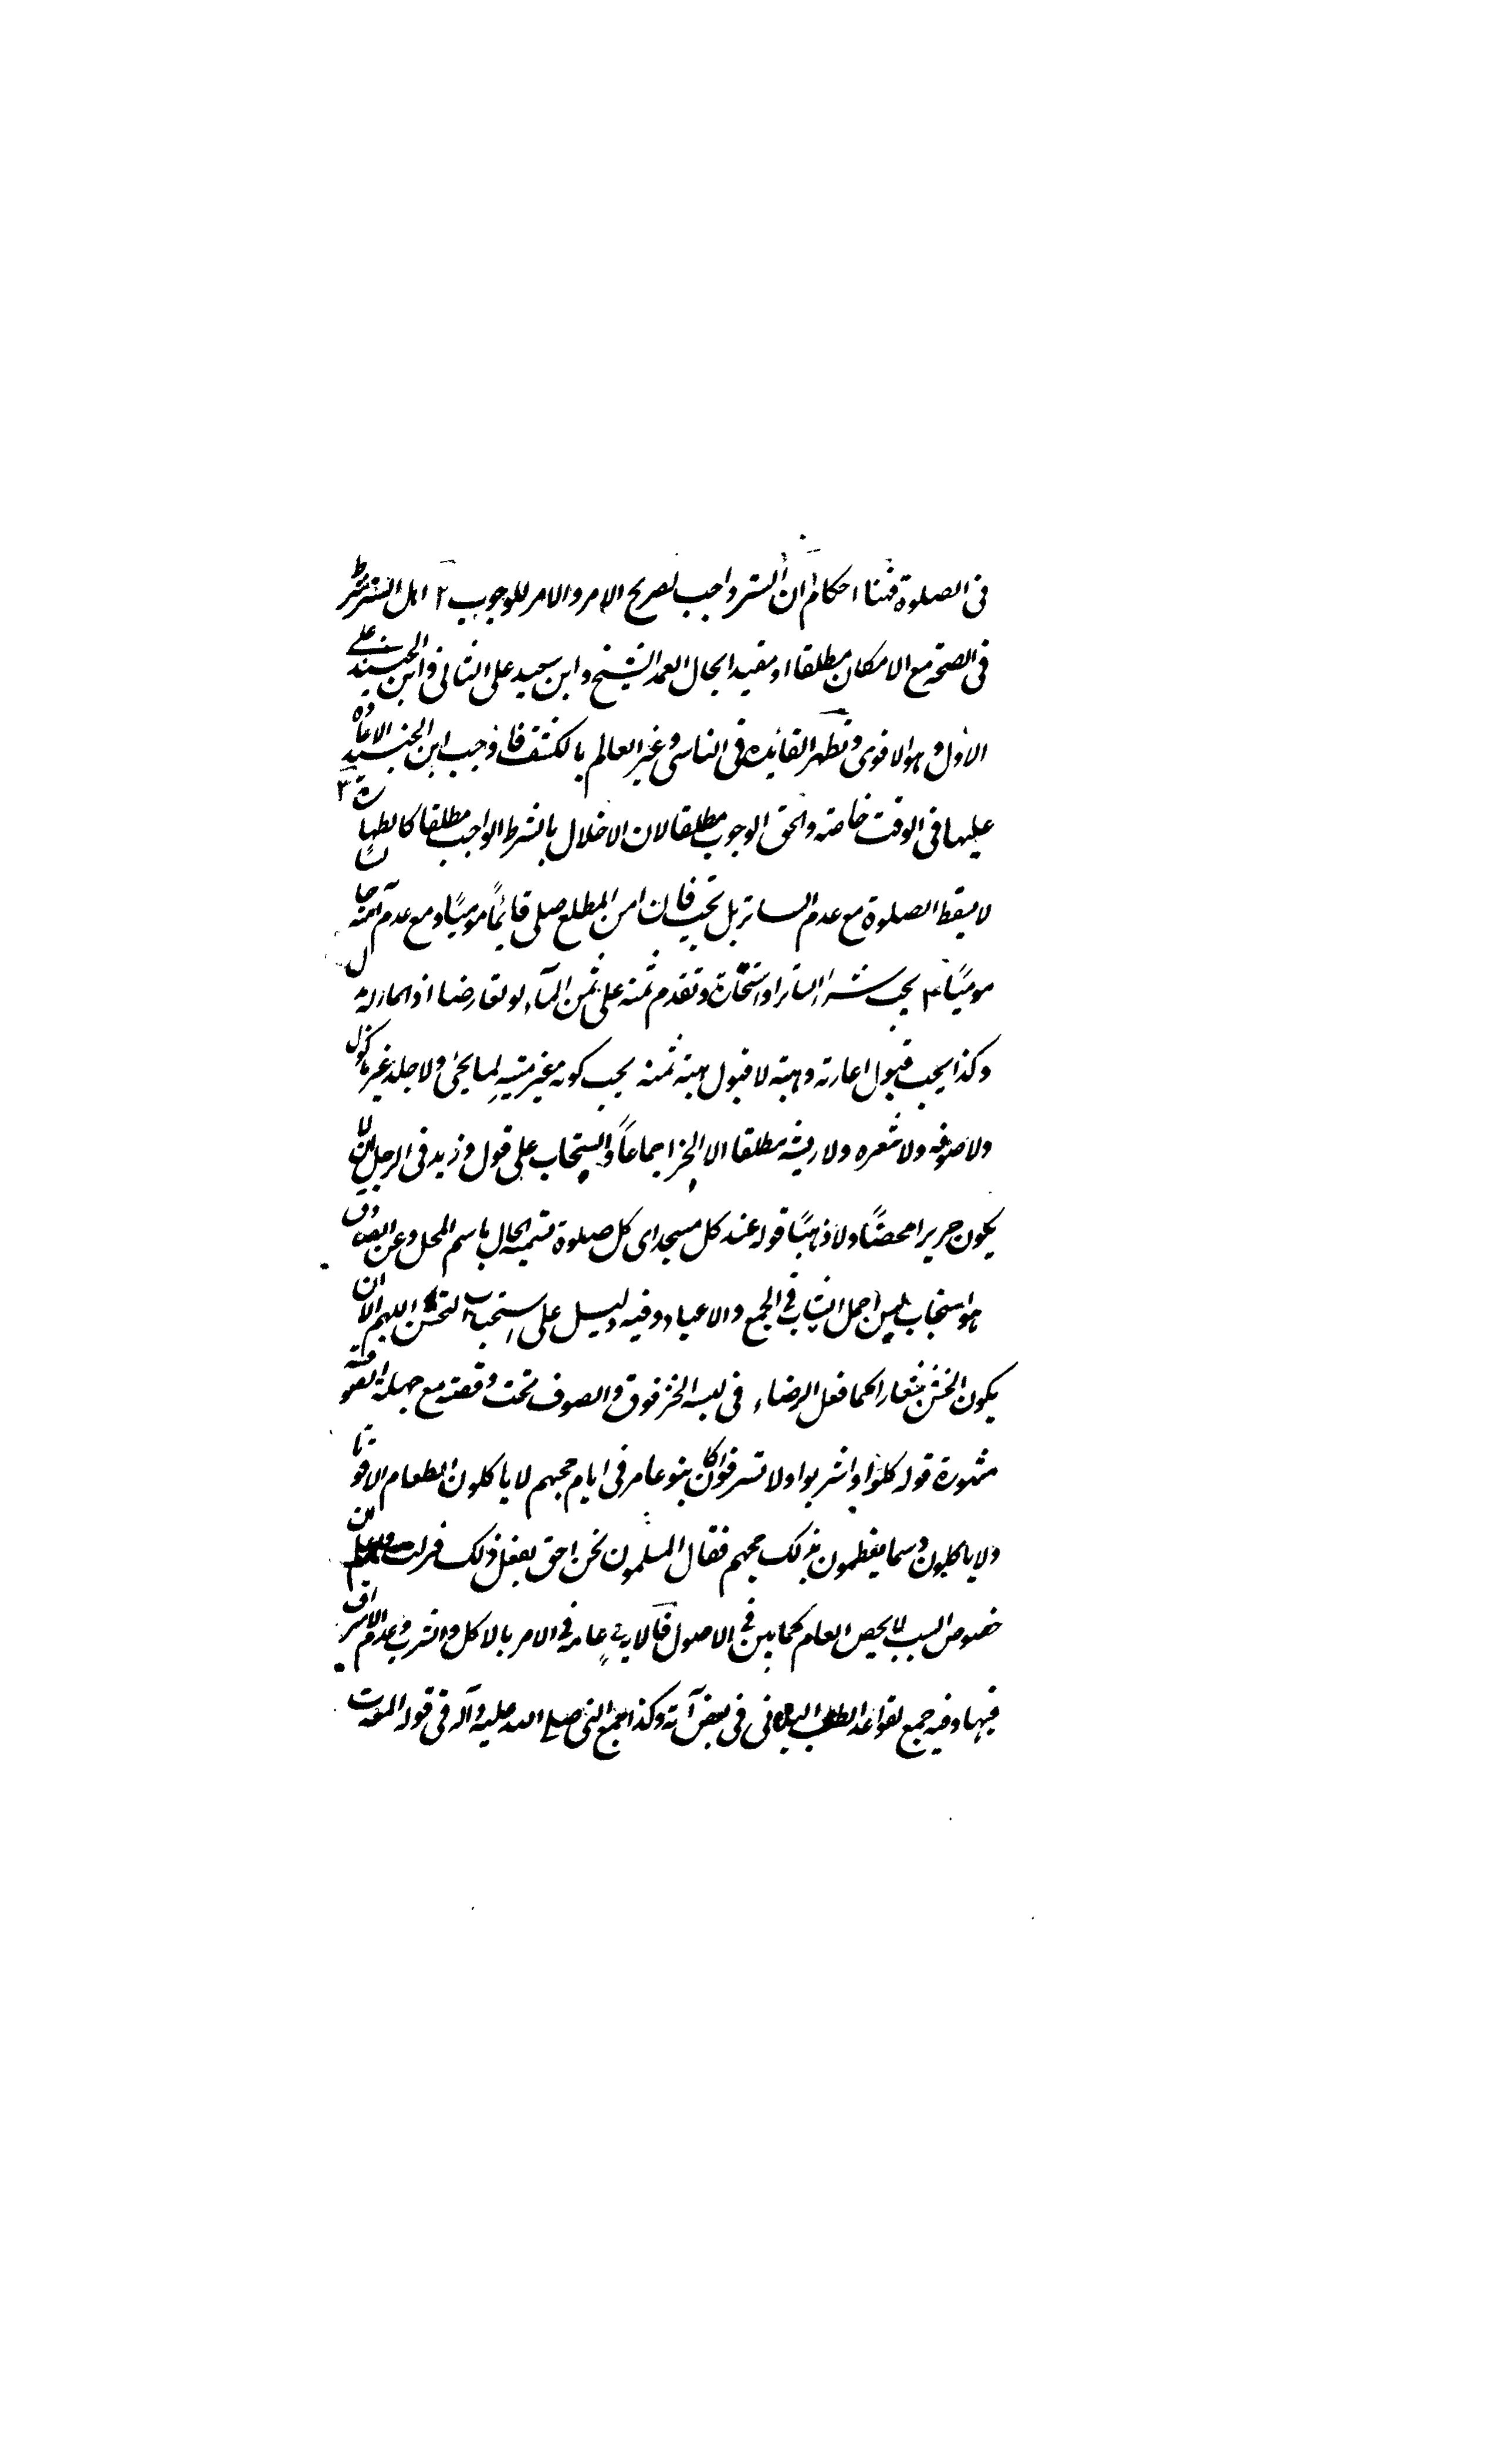 فى الصلوة فهنا احكام ا ان الستر واجب لصريح الامر والامر للوجوب ٢ هل الستر شرط
فى الصحة مع الامكان مطلقا او مقيد بحال العمد الشيخ وابن سعيد على الثانى وابن الجنيد على
الاول وهو الاقوى وتظهر الفائدة فى الناسى وغير العالم بالكشف فاوجب ابن الجنيد الاعادة
عليهما فى الوقت خاصة والحق الوجوب مطلقا لان الاخلال بالشرط الواجب مطلقا كالطهارة ٣
لا يسقط الصلوة مع عدم الساتر بل تجب فان امن المطلع صلى قائمًا موميًا ومع عدم امنه جالسا
موميًا ٤ يجب شراء الساتر او استيجاره وتقدم ثمنه على ثمن الماء لو تعارضا اذ الماء له
وكذا يجب قبول اعارته وهبته لا قبول هبة ثمنه يجب كونه غير ميتة لما يجىء ولا جلد غير ماكول
ولا صوفه ولا شعره ولا ريشه مطلقا الا الخز اجماعاً والسنجاب على قول وزيد فى الرجل ان لا
يكون حريرا محضًا ولا ذهبًا قوله عند كل مسجد اى كل صلوة تسمية الحال باسم المحل وعن الصادق
هو استحباب لبس اجمل الثياب فى الجمع والاعياد وفيه دليل على استحباب التحسن اللهم الا ان
يكون الخشن شعارا كما فعل الرضاء فى لبسه الخز فوق والصوف تحت وقصته مع جهلة الصوفية
مشهورة قوله كلوا واشربوا ولا تسرفوا كان بنو عامر فى ايام حجهم لا ياكلون الطعام الا قوتا
ولا ياكلون دسما يعظمون بذلك حجهم فقال المسلمون نحن احق بفعل ذلك فنزلت
خصوص السبب لا يخص العام كما بين فى الاصول فالاية عامة فى الامر بالاكل والشرب وعدم الاسراف
فيهما وفيه جمع لقواعد الطب فى بعض آية وكذا جمع النبى صلى الله عليه وآله فى قوله المعدة